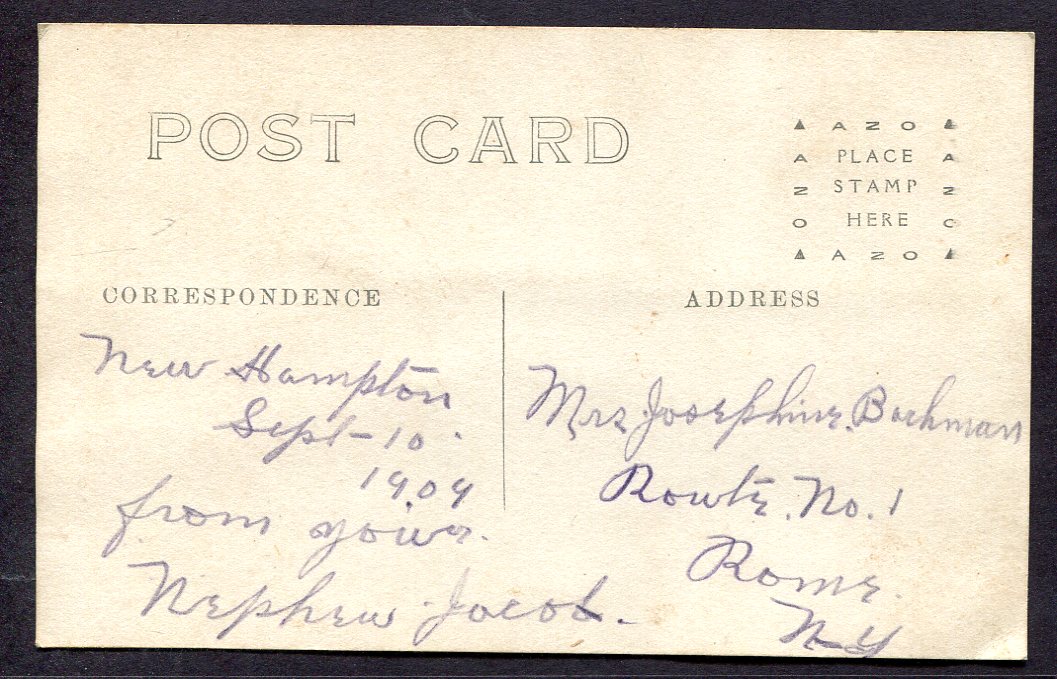 POST CARD
▲ AZO ▲
A PLACE A
Z STAMP Z
O HERE O
▲ AZO ▲
CORRESPONDENCE
New Hampton
Sept-10.
1909
from your.
Nephew Jacob.
ADDRESS
Mrs Josephine Bachman
Route. No. 1
Rome.
N-Y